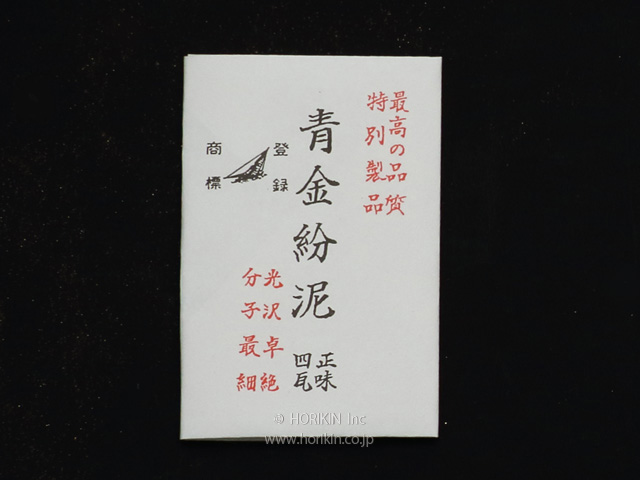 最高の品質
特別製品
青金紛泥
正味
四瓦
登録
商標
光沢卓絶
分子最細
© HORIKIN Inc
www.horikin.co.jp